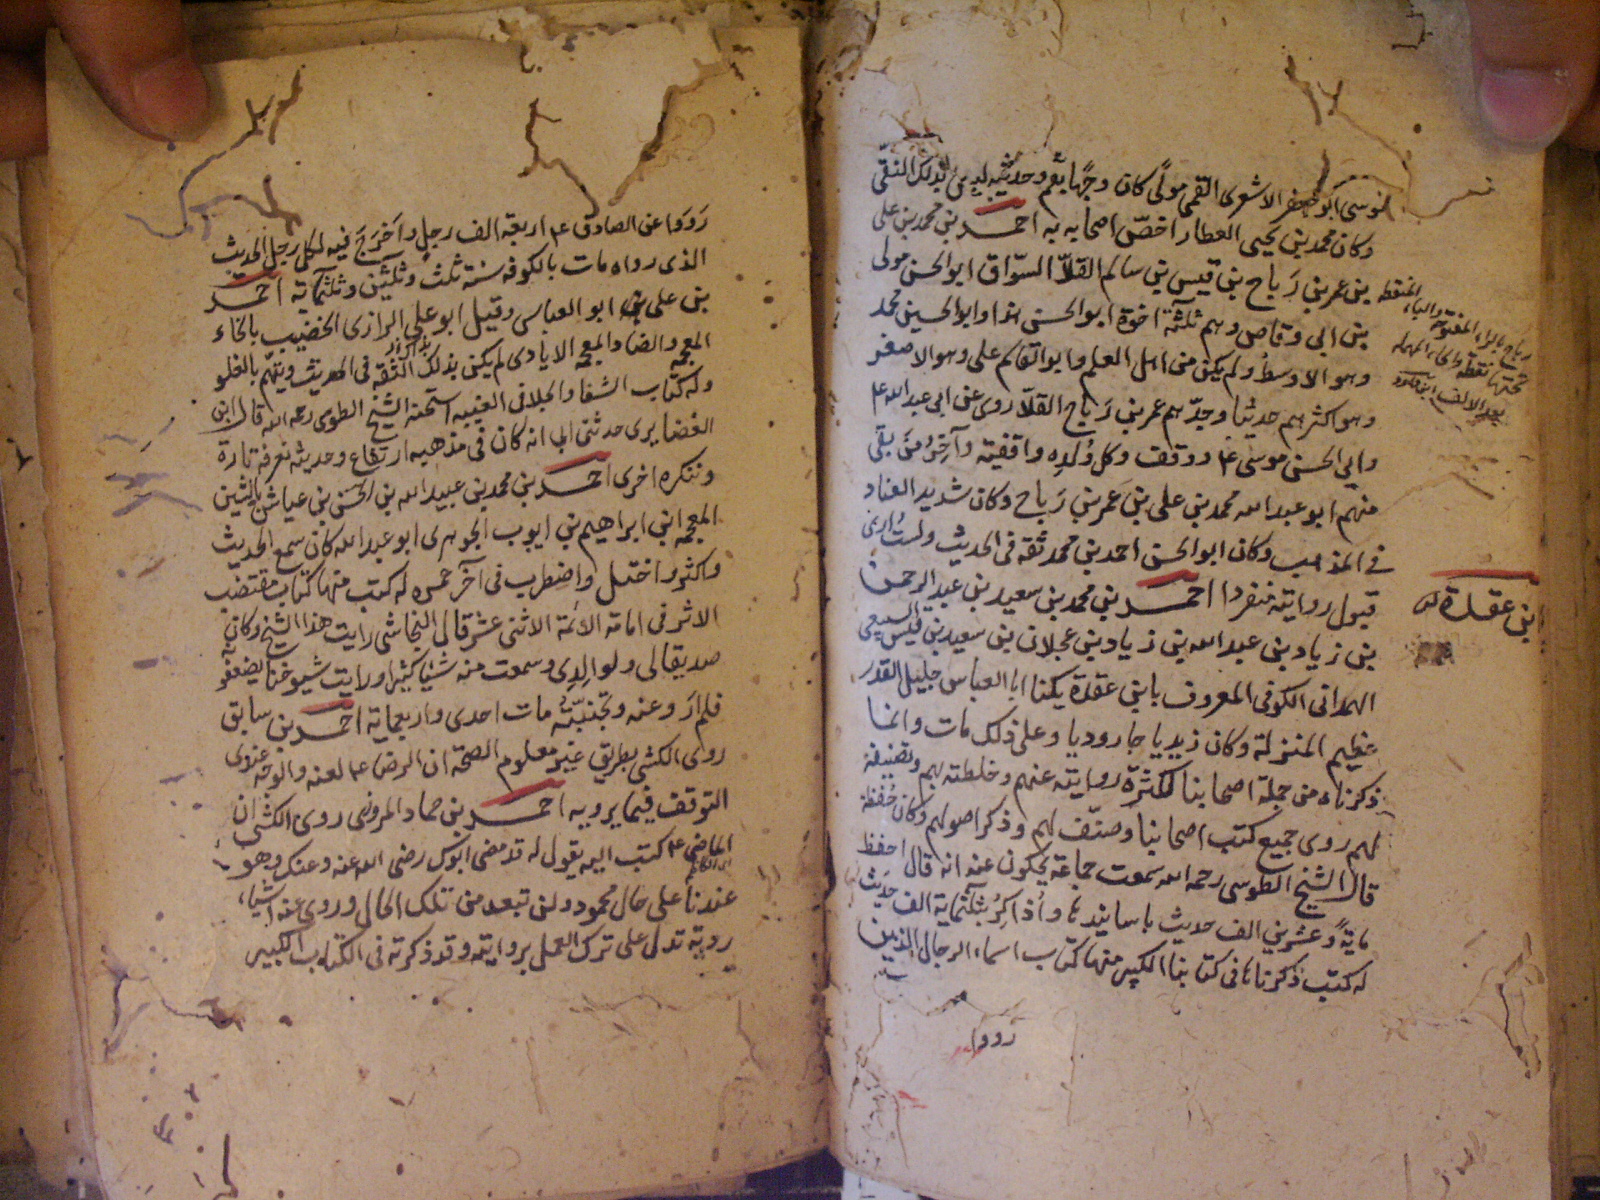 موسى ابو جعفر الاشعرى القمى مولى كان وجها بقم وحديثه ليس بذلك النقى
وكان محمد بن يحيى العطار اخص اصحابه به احمد بن محمد بن على
بن عمر بن رَباح بن قيس بن سالم القلّا السوّاق ابو الحسن مولى
بن ابى وقاص وهم ثلثة اخوة ابو الحسن هذا وابو الحسين محمد
وهو الاوسط ولم يكن من اهل العلم وابو القاسم على وهو الاصغر
وهو اكثرهم حديثا وجدّهم عمر بن رَباح القلّا روى عن ابى عبد الله ع
وابى الحسن موسى ع ووقف وكل وُلده واقفية وآخر من بقى
منهم ابو عبد الله محمد بن على بن عمر بن رَباح وكان شديد العناد
فى المذهب وكان ابو الحسن احمد بن محمد ثقة فى الحديث ولست ارى
قبول روايته منفردا احمد بن محمد بن سعيد بن عبد الرحمن
بن زياد بن عبد الله بن زياد بن عجلان بن سعيد بن قيس السبيعى
الهمدانى الكوفى المعروف بابن عقدة يكنا ابا العباس جليل القدر
عظيم المنزلة وكان زيديا جاروديا وعلى ذلك مات وانما
ذكرناه من جملة اصحابنا لكثرة روايته عنهم وخلطته بهم وتصنيفه
لهم روى جميع كتب اصحابنا وصنّف لهم وذكر اصولهم وكان حُفظة
قال الشيخ الطوسى رحمه الله سمعت جماعة يحكون عنه انه قال احفظ
مايةً وعشرين الف حديث باسانيدها وأذاكرُ بثلثماية الف حديث
له كتب ذكرناها فى كتابنا الكبير منها كتاب اسماء الرجال الذين
رووا
رباح بالراء المفتوحة والباء المنقطة
تحتها نقطة والحاء المهملة
بعد الالف
بن عقدة
رَوَوا عن الصادق ع اربعة الف رجلٍ واَخرَجَ فيه لكل رجل الحديث
الذى رواه مات بالكوفه سنة ثلث وثلثين وثلثماية احمد
بن على ابو العباس وقيل ابو على الرازى الخضيب بالخاء
المعجمه والضاد المعجمه الايادى لم يكن بذلك الثقة فى الحديث ويتّهم بالغلو
وله كتاب الشفا والجلا فى الغيبه استحسنه الشيخ الطوسى رحمه الله قال ابن
الغضايرى حدثنى ابى انه كان فى مذهبه ارتفاع وحديثه نعرفه تارة
وننكره اخرى احمد بن محمد بن عبيد الله بن الحسن بن عياش بالشين
المعجمه ابن ابراهيم بن ايوب الجوهرى ابو عبد الله كان سمع الحديث
واكثر واختل واضطرب فى آخر عمره له كتب منها كتاب مقتضب
الاثر فى امامة الائمة الاثنى عشر قال النجاشى رايت هذا الشيخ وكان
صديقا لى ولوالِدى وسمعت منه شيئا كثيرا ورايت شيوخنا يضعفونه
فلم ارَوِ عنه وتجنبّتُهُ مات احدى واربعماية احمد بن سابق
روى الكشى بطريق غير معلوم الصحة ان الرضا ع لعنه والوجه عندى
التوقف فيما يرويه احمد بن حماد المروزى روى الكشى ان
الماضى ع كتب اليه يقول له قد مضى ابوك رضى الله عنه وعنك وهو
عندنا على حال محمودة ولن تبعد من تلك الحال وروى عنه اشياء
روية تدل على ترك العمل بروايته وقد ذكرته فى الكتاب الكبير